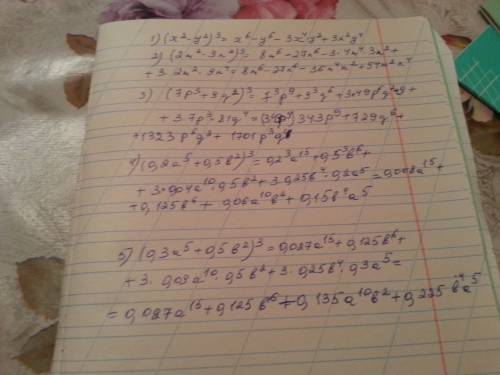 1) (x²-y²)³= x⁶-y⁶-3x⁴y²+3x²y⁴
2) (2n²-3x²)³= 8n⁶-27x⁶-3·4n⁴·3x²+
+3·2n²·9x⁴=8n⁶-27x⁶-36n⁴x²+54n²x⁴
3) (7p³+9q²)³=7³p⁹+9³q⁶+3·49p⁶q²·9+
+3·7p³·81q⁴= 343p⁹+729q⁶+
+1323p⁶q²+1701p³q⁴
4) (0,2a⁵+0,5b²)³=0,2³a¹⁵+0,5³b⁶+
+3·0,04a¹⁰·0,5b²+3·0,25b⁴·0,2a⁵=0,008a¹⁵+
+0,125b⁶+0,06a¹⁰b²+0,15b⁴a⁵
5) (0,3a⁵+0,5b²)³=0,027a¹⁵+0,125b⁶+
+3·0,09a¹⁰·0,5b²+3·0,25b⁴·0,3a⁵=
=0,027a¹⁵+0,125b⁶+0,135a¹⁰b²+0,225b⁴a⁵